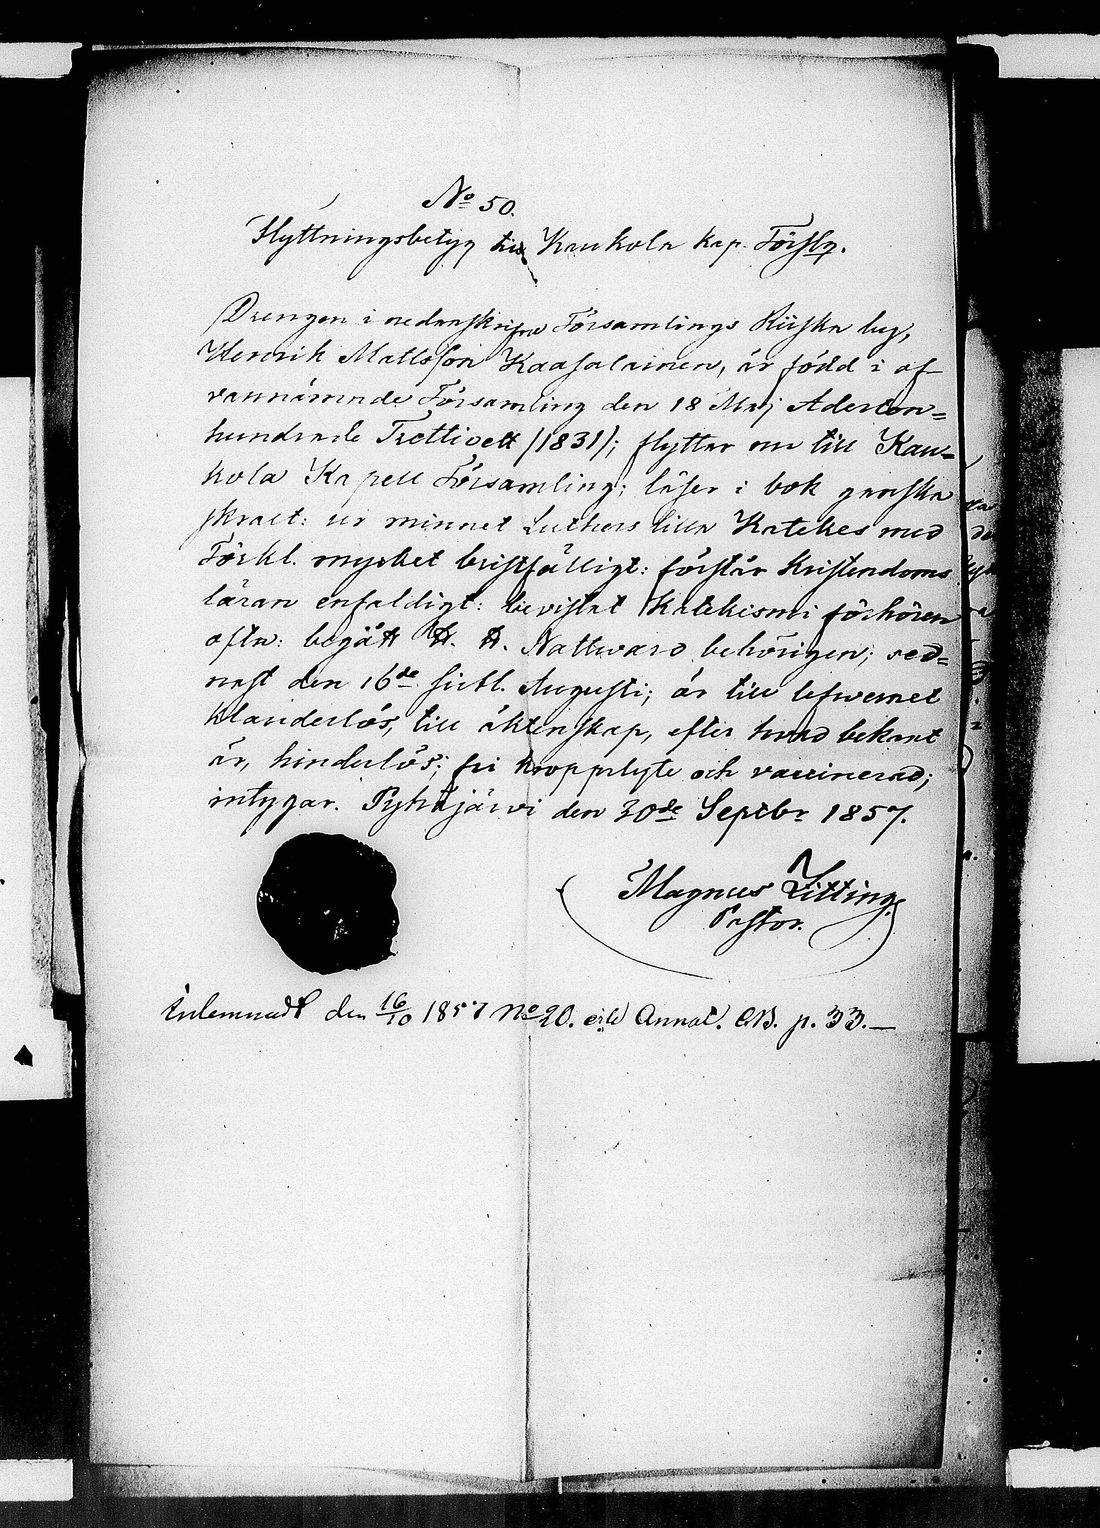 No 50.
Flyttningsbetyg till Kaukola Kap. Förslg.
Drengen i nedanskrifne Församlings Riiska by,
Henrik Mattsson Kaasalainen, är född i of-
vannämnde Församling den 18 Maj Aderton=
hundrade Trettiett (1831); flyttar nu till Kau=
kola Kapell Församling; läser i bok ganska
svalt: ur minnet Luthers lilla Katekes med
Förkl. mycket bristfälligt: förstår Kristendoms
läran enfaldigt: bevistat Katekismi förhören
ofta: begått H. H. Nattward behörigen; sed=
nast den 16de sistl. Augusti; är till lefwernet
klanderlös, till äktenskap, efter hwad bekant
är, hinderlös; fri kroppslyte och vaccinerad;
intygar. Pyhäjärwi den 30de Septbr 1857.
Magnus Zitting
Pastor.
Inlemnadt den 16/10 1857 No 20. Annot. CB. p. 33.—